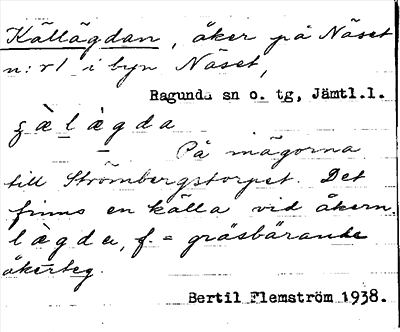 Källägdan, åker på Näset
n:r 1 i byn Näset,
Ragunda sn o. tg, Jämtl.l.
ʒ æ l æ g d a
På mägorna
till Strömbergstorpet. Det
finns en källa vid åkern.
l æ g d a, f. = gräsbärande
åkerteg.
Bertil Flemström 1938.